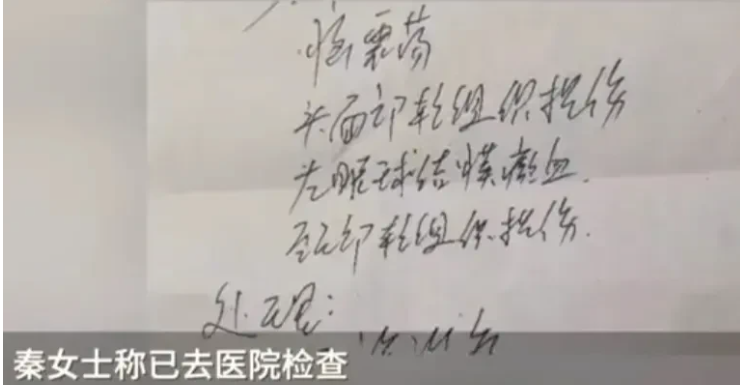 脑震荡
头面部软组织损伤
左眼球结膜瘀血.
颈部软组织损伤.
处理:
秦女士称已去医院检查